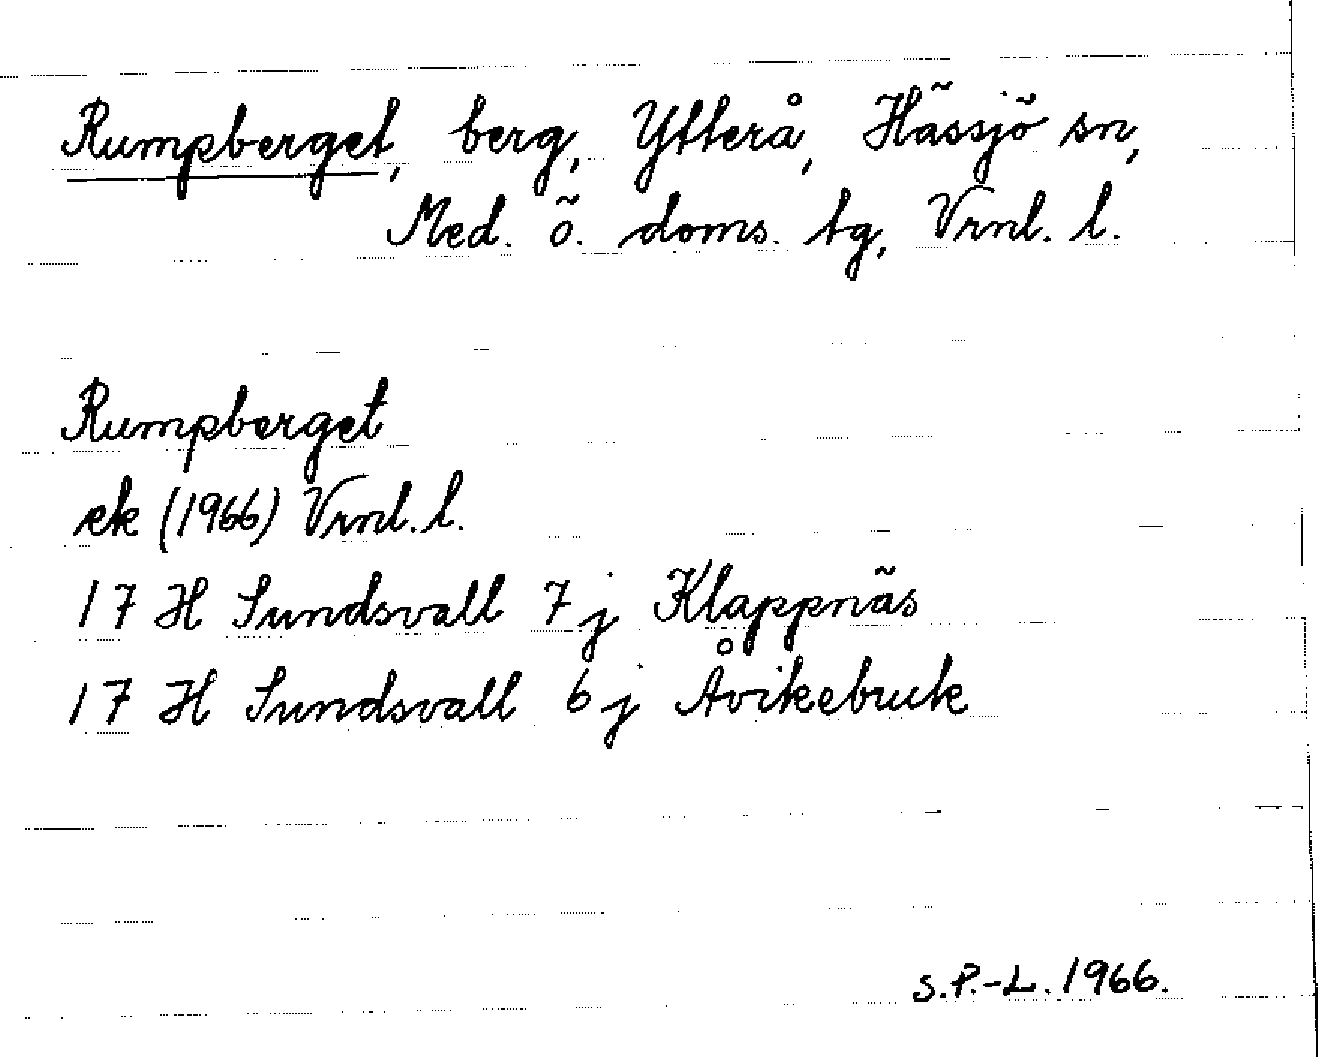 Rumpberget, berg, Ytterå, Hässjö sn,
Med. ö. doms. tg, Vrnl. l.
Rumpberget
ek (1966) Vrnl. l.
17 H Sundsvall 7 j Klappnäs
17 H Sundsvall 6 j Åvikebruk
S.P.-L. 1966.